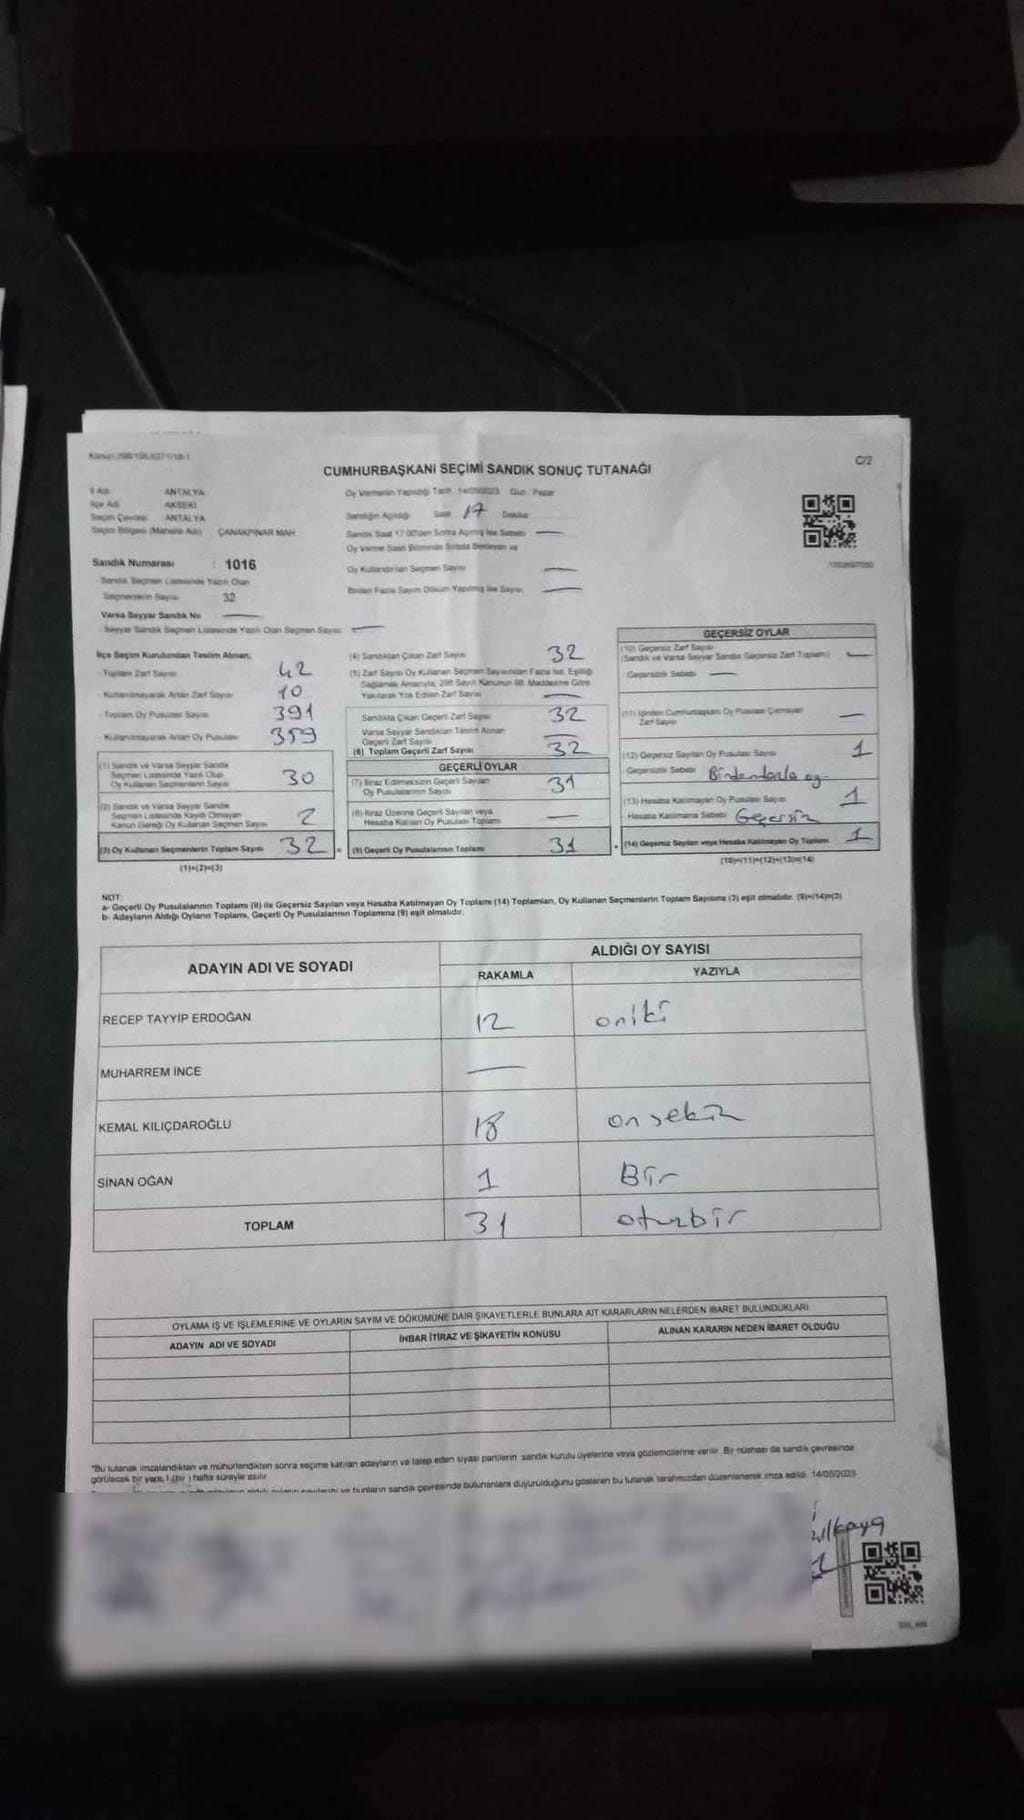 CUMHURBAŞKANI SEÇİMİ SANDIK SONUÇ TUTANAĞI
C/2
İl Adı ANTALYA
İlçe Adı AKSEKİ
Seçim Çevresi ANTALYA
Seçim Bölgesi (Mahalle Adı) ÇANAKPINAR MAH
Oy Vermenin Yapıldığı Tarih 14/05/2023 Gün Pazar
Sandığın Açıldığı Saat 17 Dakika
Sandık Saat 17.00'den Sonra Açılmış İse Sebebi —
Oy Verme Saati Bitiminde Sırada Bekleyen ve
Oy Kullandırılan Seçmen Sayısı —
Birden Fazla Sayım Döküm Yapılmış İse Sayısı —
Sandık Numarası : 1016
Sandık Seçmen Listesinde Yazılı Olan
Seçmenlerin Sayısı 32
Varsa Seyyar Sandık No —
Seyyar Sandık Seçmen Listesinde Yazılı Olan Seçmen Sayısı —
İlçe Seçim Kurulundan Teslim Alınan;
- Toplam Zarf Sayısı 42
- Kullanılmayarak Artan Zarf Sayısı 10
- Toplam Oy Pusulası Sayısı 391
- Kullanılmayarak Artan Oy Pusulası 359
(1) Sandık ve Varsa Seyyar Sandık
Seçmen Listesinde Yazılı Olup
Oy Kullanan Seçmenlerin Sayısı 30
(2) Sandık ve Varsa Seyyar Sandık
Seçmen Listesinde Kayıtlı Olmayan
Kanun Gereği Oy Kullanan Seçmen Sayısı 2
(3) Oy Kullanan Seçmenlerin Toplam Sayısı 32 =
(1)+(2)=(3)
(4) Sandıktan Çıkan Zarf Sayısı 32
(5) Zarf Sayısı Oy Kullanan Seçmen Sayısından Fazla İse, Eşitliği
Sağlamak Amacıyla, 298 Sayılı Kanunun 98. Maddesine Göre
Yakılarak Yok Edilen Zarf Sayısı —
Sandıkta Çıkan Geçerli Zarf Sayısı 32
Varsa Seyyar Sandıktan Teslim Alınan
Geçerli Zarf Sayısı —
(6) Toplam Geçerli Zarf Sayısı 32
GEÇERLİ OYLAR
(7) İtiraz Edilmeksizin Geçerli Sayılan
Oy Pusulalarının Sayısı 31
(8) İtiraz Üzerine Geçerli Sayılan veya
Hesaba Katılan Oy Pusulası Toplamı —
(9) Geçerli Oy Pusulalarının Toplamı 31 +
GEÇERSİZ OYLAR
(10) Geçersiz Zarf Sayısı
(Sandık ve Varsa Seyyar Sandık Geçersiz Zarf Toplamı) —
Geçersizlik Sebebi —
(11) İçinden Cumhurbaşkanı Oy Pusulası Çıkmayan
Zarf Sayısı —
(12) Geçersiz Sayılan Oy Pusulası Sayısı 1
Geçersizlik Sebebi Birdenfazla oy
(13) Hesaba Katılmayan Oy Pusulası Sayısı 1
Hesaba Katılmama Sebebi Geçersiz
(14) Geçersiz Sayılan veya Hesaba Katılmayan Oy Toplamı 1
(10)+(11)+(12)+(13)=(14)
NOT:
a- Geçerli Oy Pusulalarının Toplamı (9) ile Geçersiz Sayılan veya Hesaba Katılmayan Oy Toplamı (14) Toplamları, Oy Kullanan Seçmenlerin Toplam Sayısına (3) eşit olmalıdır. (9)+(14)=(3)
b- Adayların Aldığı Oyların Toplamı, Geçerli Oy Pusulalarının Toplamına (9) eşit olmalıdır.
ADAYIN ADI VE SOYADI
ALDIĞI OY SAYISI
RAKAMLA YAZIYLA
RECEP TAYYİP ERDOĞAN 12 oniki
MUHARREM İNCE —
KEMAL KILIÇDAROĞLU 18 onsekiz
SİNAN OĞAN 1 Bir
TOPLAM 31 oturbir
OYLAMA İŞ VE İŞLEMLERİNE VE OYLARIN SAYIM VE DÖKÜMÜNE DAİR ŞİKAYETLERLE BUNLARA AİT KARARLARIN NELERDEN İBARET BULUNDUKLARI
ADAYIN ADI VE SOYADI İHBAR İTİRAZ VE ŞİKAYETİN KONUSU ALINAN KARARIN NEDEN İBARET OLDUĞU
*Bu tutanak imzalandıktan ve mühürlendikten sonra seçime katılan adayların ve talep eden siyasi partilerin sandık kurulu üyelerine veya gözlemcilerine verilir. Bir nüshası da sandık çevresinde
görülecek bir yere, 1 (bir) hafta süreyle asılır.
ve bunların sandık çevresinde bulunanlara duyurulduğunu gösteren bu tutanak tarafımızdan düzenlenerek imza edildi. 14/05/2023